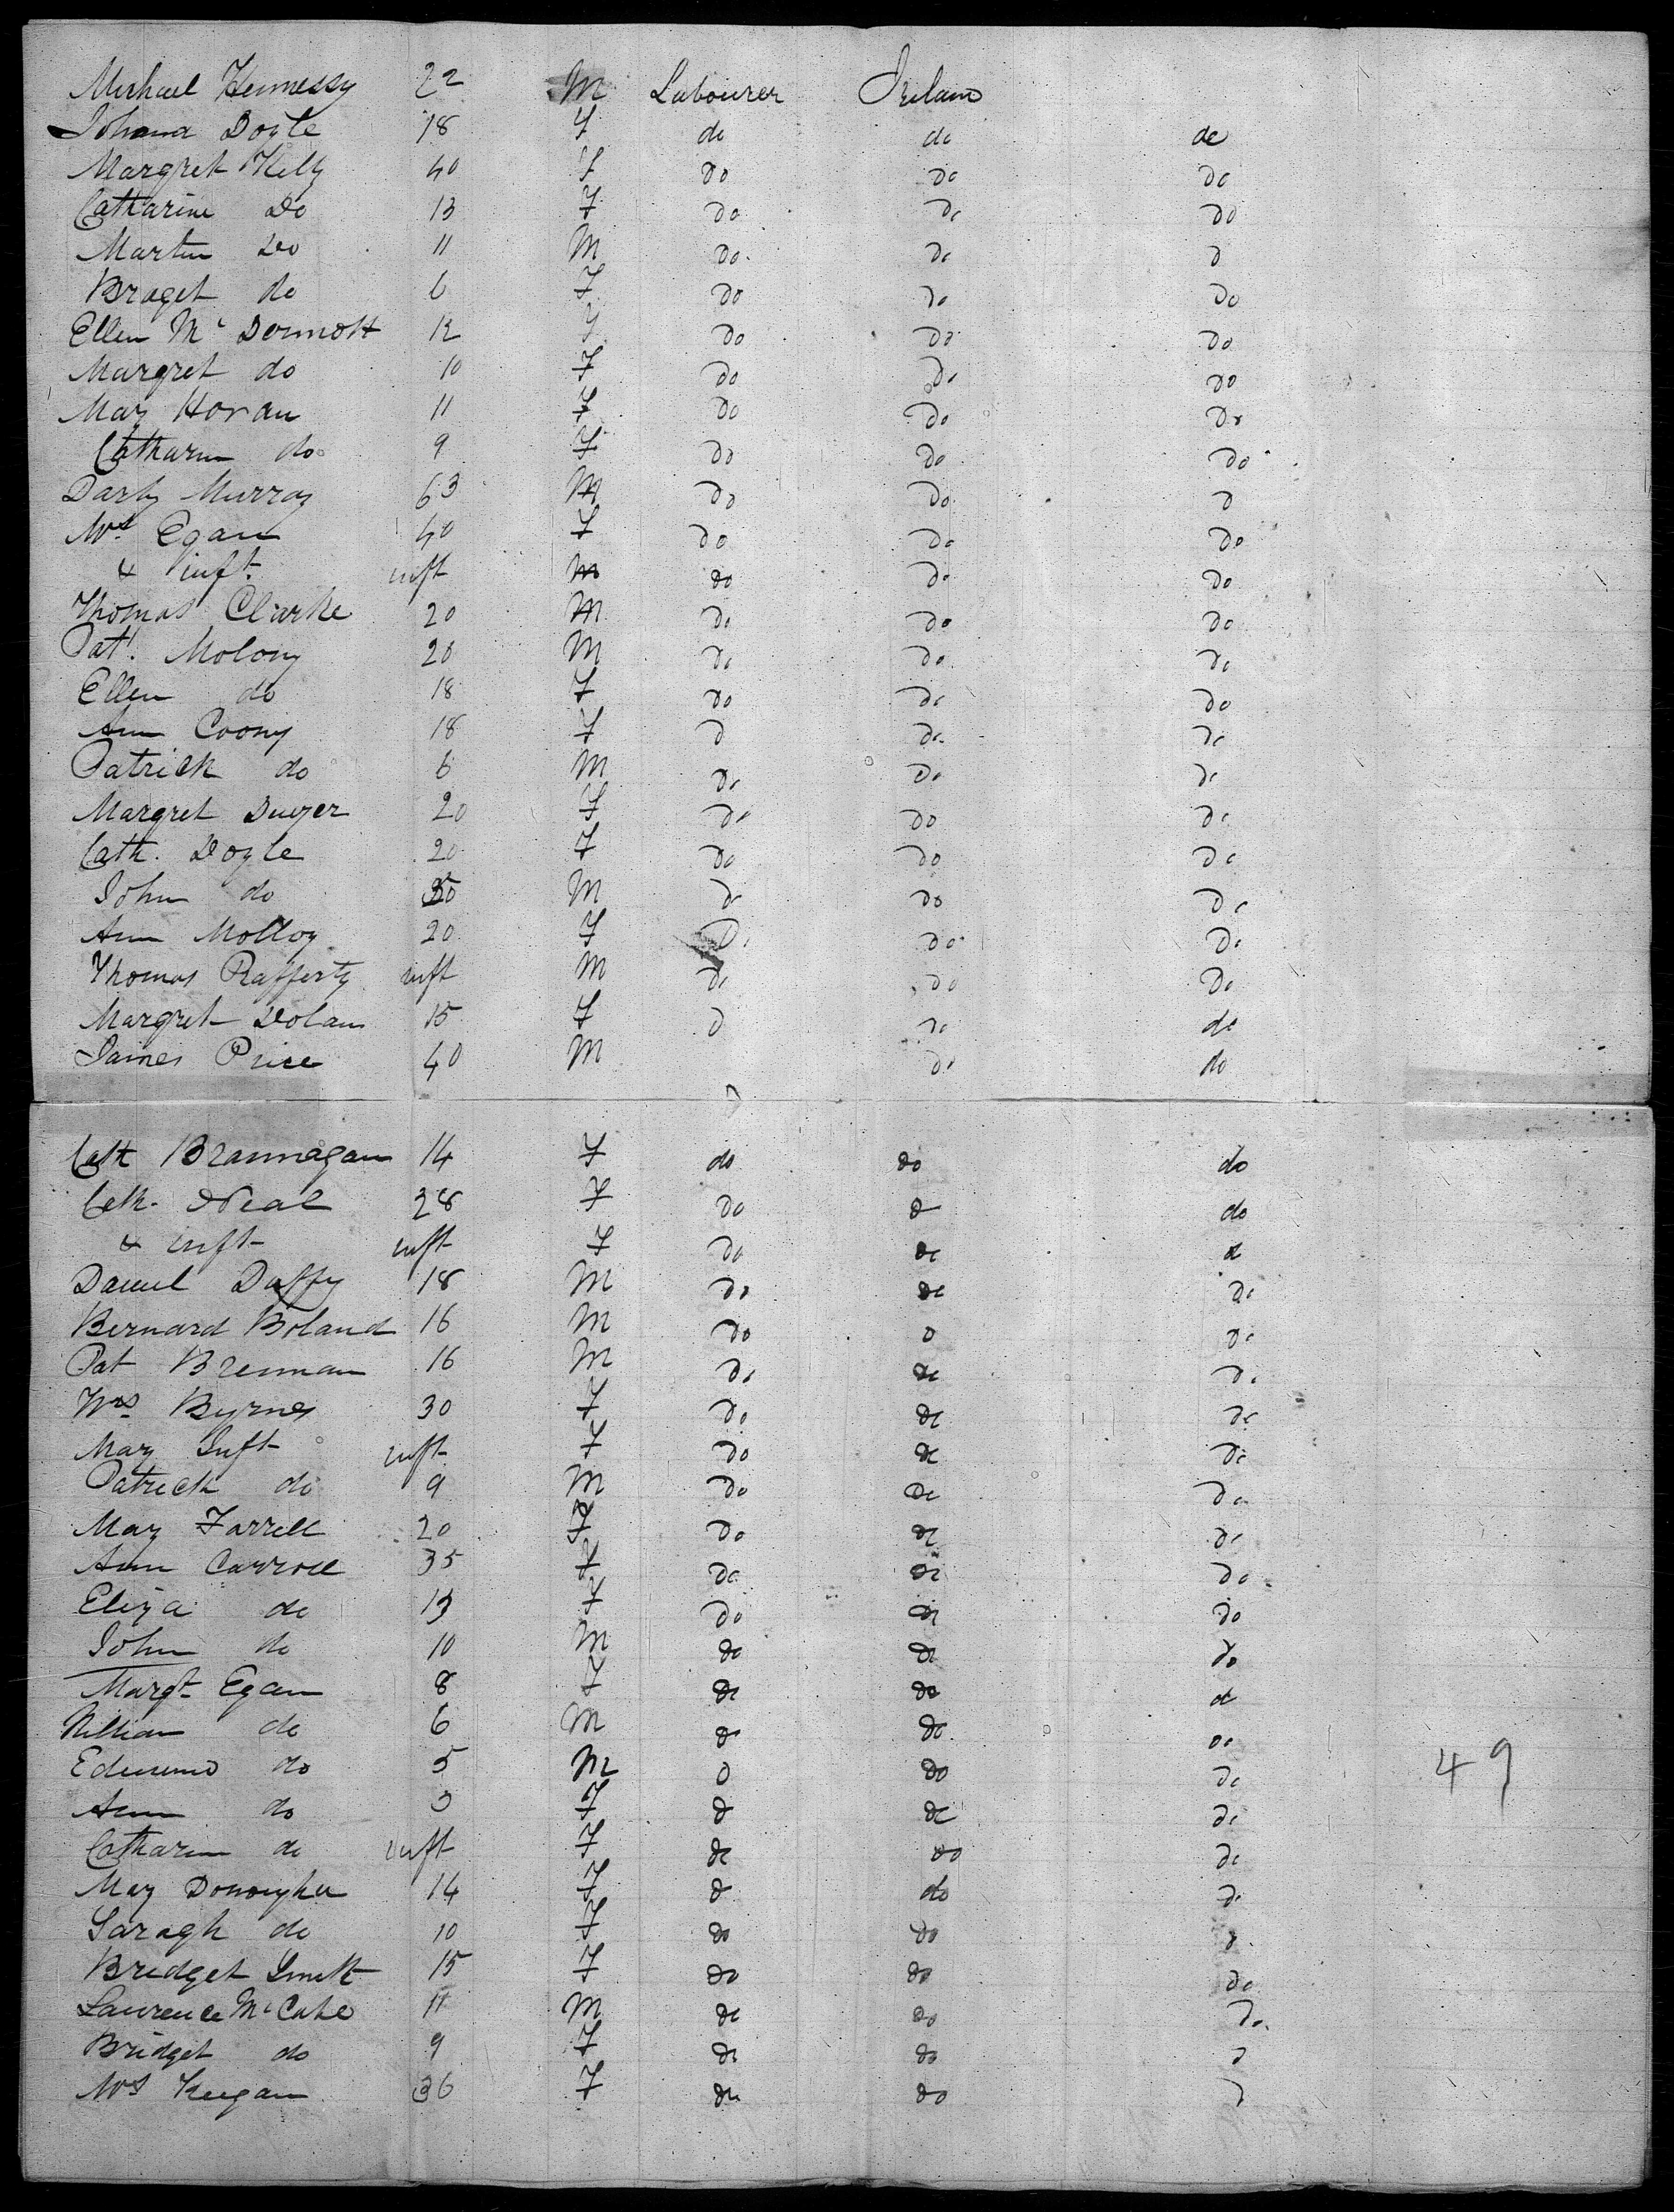 Michael Hennessy 22 M Labourer Ireland
Johana Doyle 18 F do do do
Margret Kelly 40 F do do do
Catharine Do 13 F do do do
Martin Do 11 M do do d
Braget do 6 F do do do
Ellen Mc Dermott 12 F do do do
Margret do 10 F do do do
Mary Horan 11 F do do do
Catharin do 9 F do do do
Darby Murray 63 M do do d
Mrs Egan 40 F do do do
& inft. inft M do do do
Thomas Clarke 20 M do do do
Patk. Molony 20 M do do do
Ellen do 18 F do do do
Ann Coony 18 F d do do
Patrick do 6 M do do do
Margret Dwyer 20 F do do do
Cath. Doyle 20 F do do do
John do M do do do
Ann Molloy 20 F do do do
Thomas Rafferty inft M do do do
Margret Dolan 15 F d do do
James Price 40 M do do
Cath Brannagan 14 F do do do
Cath. Neal 28 F do do do
& inft inft F do do do
Daniel Duffy 18 M do do do
Bernard Boland 16 M do do do
Pat Brennan 16 M do do do
Mrs Byrnes 30 F do do do
Mary Inft inft F do do do
Patrick do 9 M do do do
Mary Farrell 20 F do do do
Ann Carroll 35 F do do do
Eliza do 13 F do do do
John do 10 M do do do
Margt. Egan 8 F do do do
William do 6 M do do do
Edmund do 5 M do do do
Ann do 3 F do do do
Catharin do inft F do do do
Mary Donoughu 14 F do do do
Saragh do 10 F do do do
Bridget Smith 15 F do do do
Laurence Mc Cabe 11 M do do do
Bridget do 9 F do do d
Mrs Keegan 36 F do do d
49